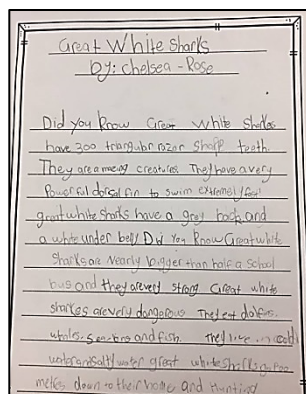 Great White Sharks
by: Chelsea-Rose
Did you Know Great White Sharkes
have 300 triangular razor sharp teath.
They are amazing creatures. They have a very
Powerful dorsal fin to swim extremely fast
great white sharks have a grey back and
a white under belly Did You Know Great white
Sharks are Nearly bigger than half a School
bus and they are very strong. Great white
sharkes are very dangerous They eat
whales. and fish. They live in cold
water and salty water great white sharks go
metres down to their home and Hunting